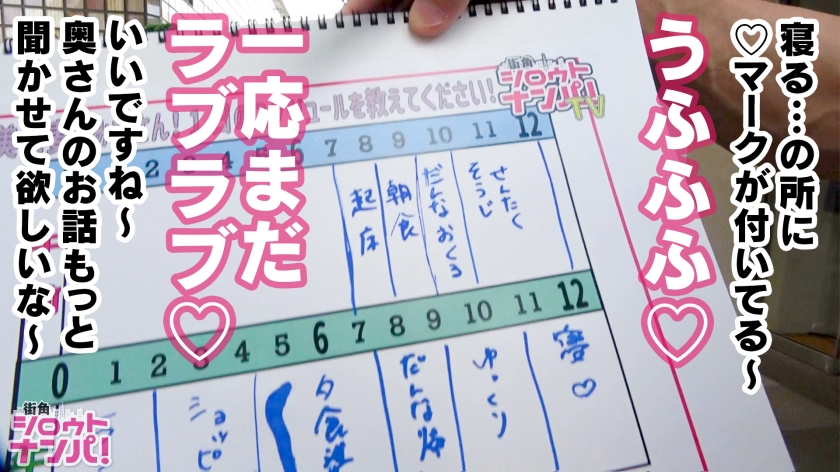 寝る…の所に
♡マークが付いてる～
うふふふ♡
一応まだ
ラブラブ♡
いいですね～
奥さんのお話もっと
聞かせて欲しいな～
街角
シロウト
ナンパ!
TV
ュールを教えてください!
2 6 7 8 9 10 11 12
起床
朝食
だんなおくる
せんたく
そうじ
0 1 2 3 4 5 6 7 8 9 10 11 12
ショッピ
夕食
だんな帰
ゆっくり
寝♡
街角
シロウト
ナンパ!